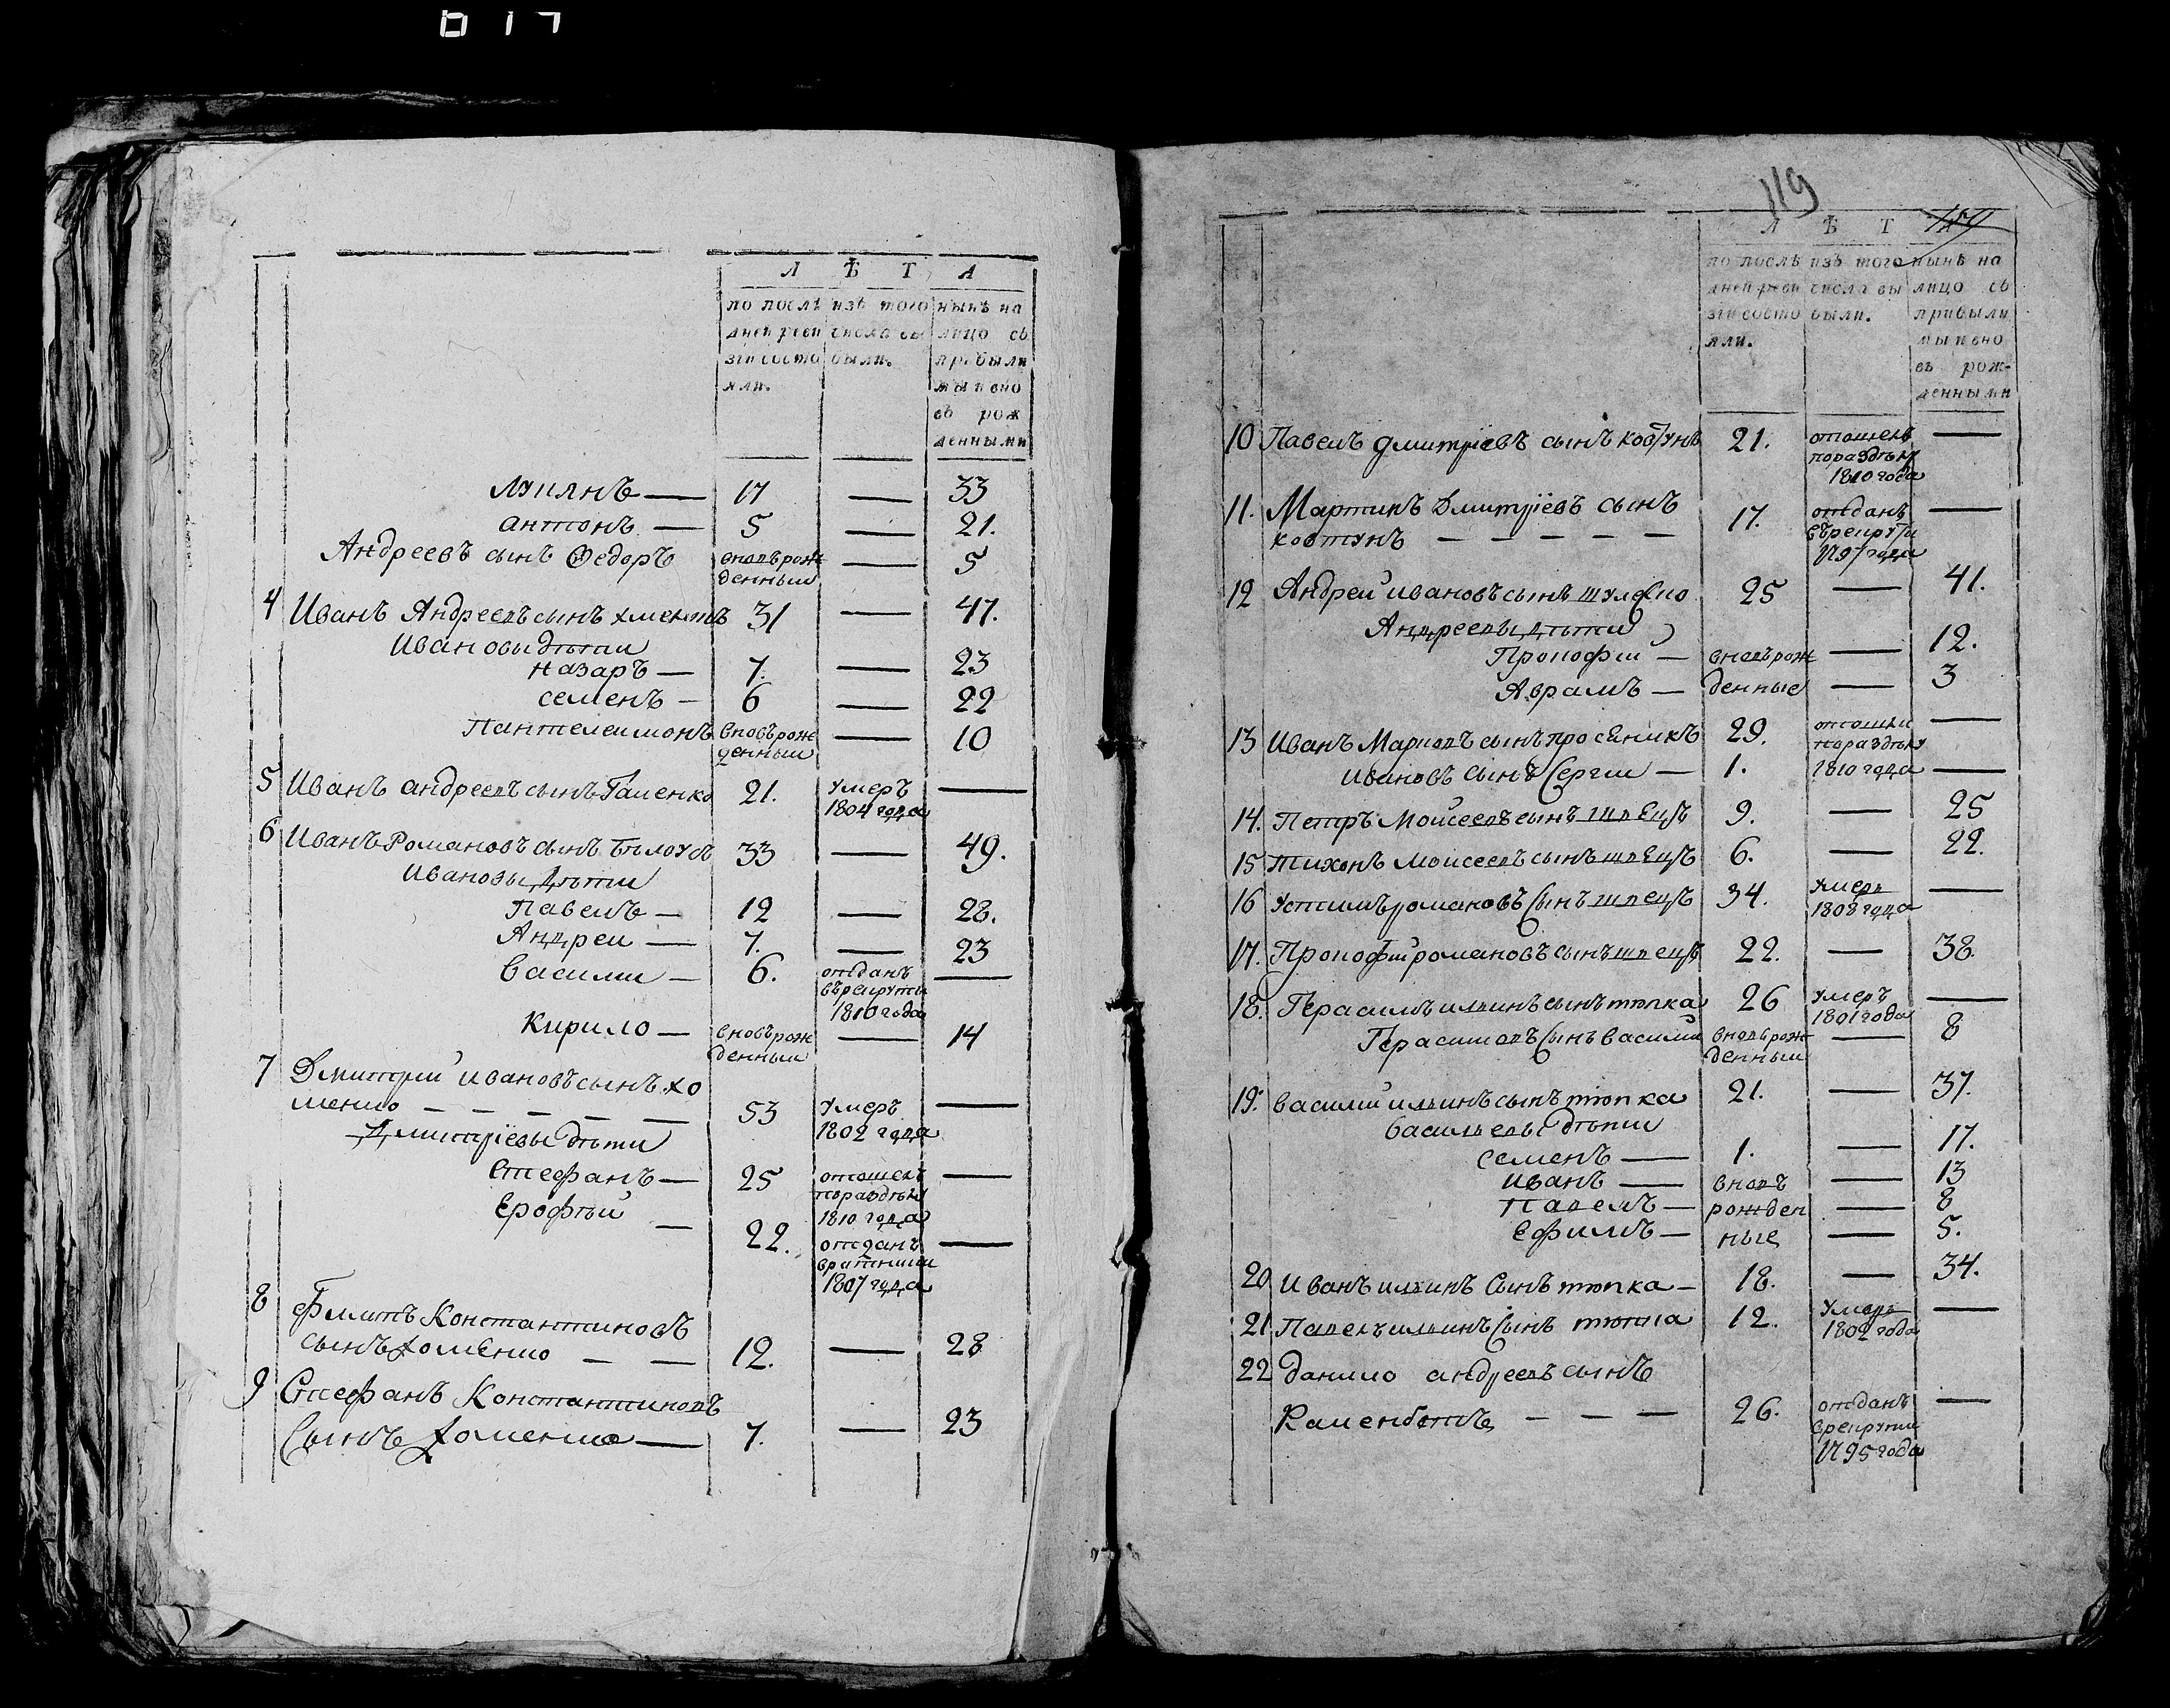 Л Ѣ Т А
по послѣ изъ того нынѣ на
дней реви числа вы лицо съ
зіи состо были. прибыли
яли. ми и вно
въ рож
денными
Лукянъ — 17 — 33
антонъ — 5 — 21.
Андреевъ сынъ Ѳедоръ вновь рож — 5
денныи
4 Иванъ Андреевъ сынъ 31 — 47.
Ивановы дѣти
назаръ — 7. — 23
семенъ — 6 — 22
Пантелеимонъ вновь рож — 10
денныи
5 Иванъ андреевъ сынъ 21. умеръ —
1804 года
6 Иванъ Романовъ сынъ Бѣлоусъ 33 — 49.
Ивановы дѣти
Павелъ — 12 — 28.
Андреи — 7. — 23
Василии — 6. отъданъ —
въ рекруты
1810 года
Кирило — вновь рож — 14
денныи
7 Дмитрий Ивановъ сынъ хо
менко — — — — — 53 умеръ —
1802 года
Дмитріевы дѣти
Стефанъ — 25 отошелъ —
по раздѣлу
1810 года
Ерофѣй — 22. отданъ —
1807 года
8 Филипъ Константиновъ
сынъ хоменко — — 12. — 28
9 Стефанъ Константиновъ
Сынъ хоменко — 7. — 23
119
Л Ѣ Т А
по послѣ изъ того нынѣ на
дней реви числа вы лицо съ
зіи состо были. прибыли
яли. ми и вно
въ рож-
денными
10 Павелъ дмитріевъ сынъ ковтунъ 21. отошелъ —
по раздѣлу
1810 года
11. Мартинъ Дмитріевъ сынъ
ковтунъ — — — — — 17. отъданъ —
въ рекруты
1797 года
12 Андрей ивановъ сынъ 25 — 41.
Андреевы дѣти
Прокофии — вновь рож — 12.
Аврамъ — денные — 3
13 Иванъ Марковъ сынъ просяникъ 29. отошли —
по раздѣлу
ивановъ сынъ Сергии — 1. 1810 года —
14. Петръ Моисеевъ сынъ швецъ 9. — 25
15 тихонъ Моисеевъ сынъ швецъ 6. — 22.
16 устимъ романовъ Сынъ швецъ 34. умеръ —
1808 года
17. Прокофий романовъ сынъ швецъ 22. — 38.
18. Герасимъ ильинъ сынъ тюпка 26 умеръ —
1801 года
Герасимовъ Сынъ Василий вновь рож — 8
денныи
19. Василий ильинъ сынъ тюпка 21. — 37.
Васильевы дѣти
Семенъ — 1. — 17.
Иванъ — вновь — 13
Павелъ — рожден — 8
Ефимъ — ные — 5.
20 Иванъ ильинъ Сынъ тюпка — 18. — 34.
21 Павелъ ильинъ Сынъ тюпка 12. умеръ —
1802 года
22 данило андреевъ сынъ
— — — 26. отъданъ —
в рекруты
1795 года